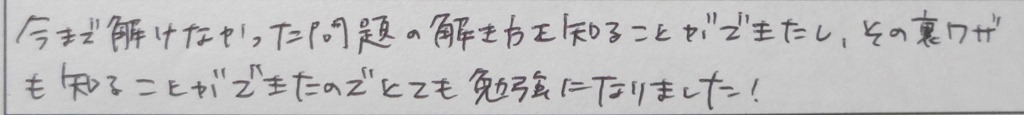 今まで解けなかった問題の解き方を知ることができたし、その裏ワザ
も知ることができたのでとても勉強になりました!